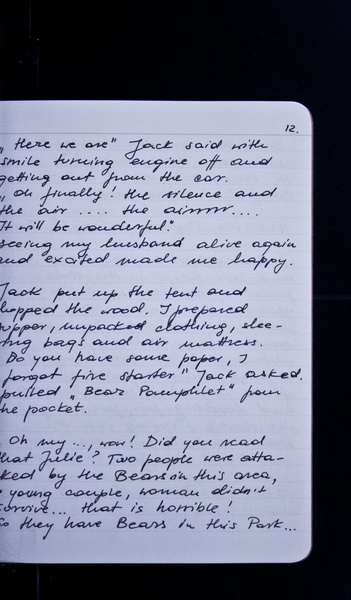 12.
"Here we are" Jack said with
smile turning engine off and
getting out from the car.
"Oh finally! the silence and
the air .... the airrrrr....
It will be wonderful."
seeing my husband alive again
and excited made me happy.
Jack put up the tent and
hopped the wood. I prepared
upper, unpacked clothing, slee-
ing bags and air mattress.
Do you have some paper, I
forgot fire starter" Jack asked.
pulled "Bear Pamphlet" from
he pocket.
Oh my..., wow! Did you read
that Julie? Two people were atta-
ked by the Bears in this area,
young couple, woman didn't
survive... that is horrible!
So they have Bears in this Park...